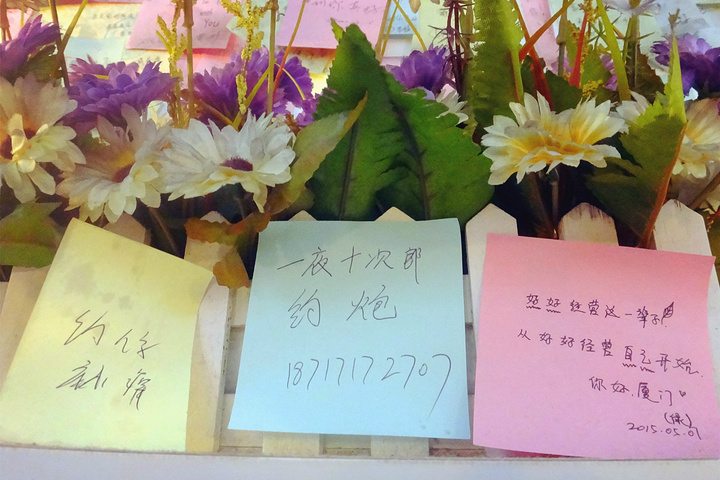 约
一夜十次郎
约炮
18717172707
好好经营这一辈子!
从好好经营自己开始.
你好.厦门
2015.05.01